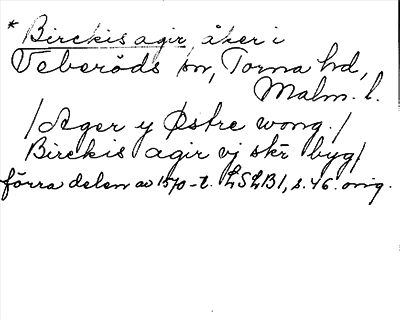 * Birckis agir, åker i
Veberöds sn, Torna hd,
Malm. l.
/Ager y Østre wong./
Birckis agir vj skr byg/
förra delen av 1570-t. LSLB1, s. 46. orig.